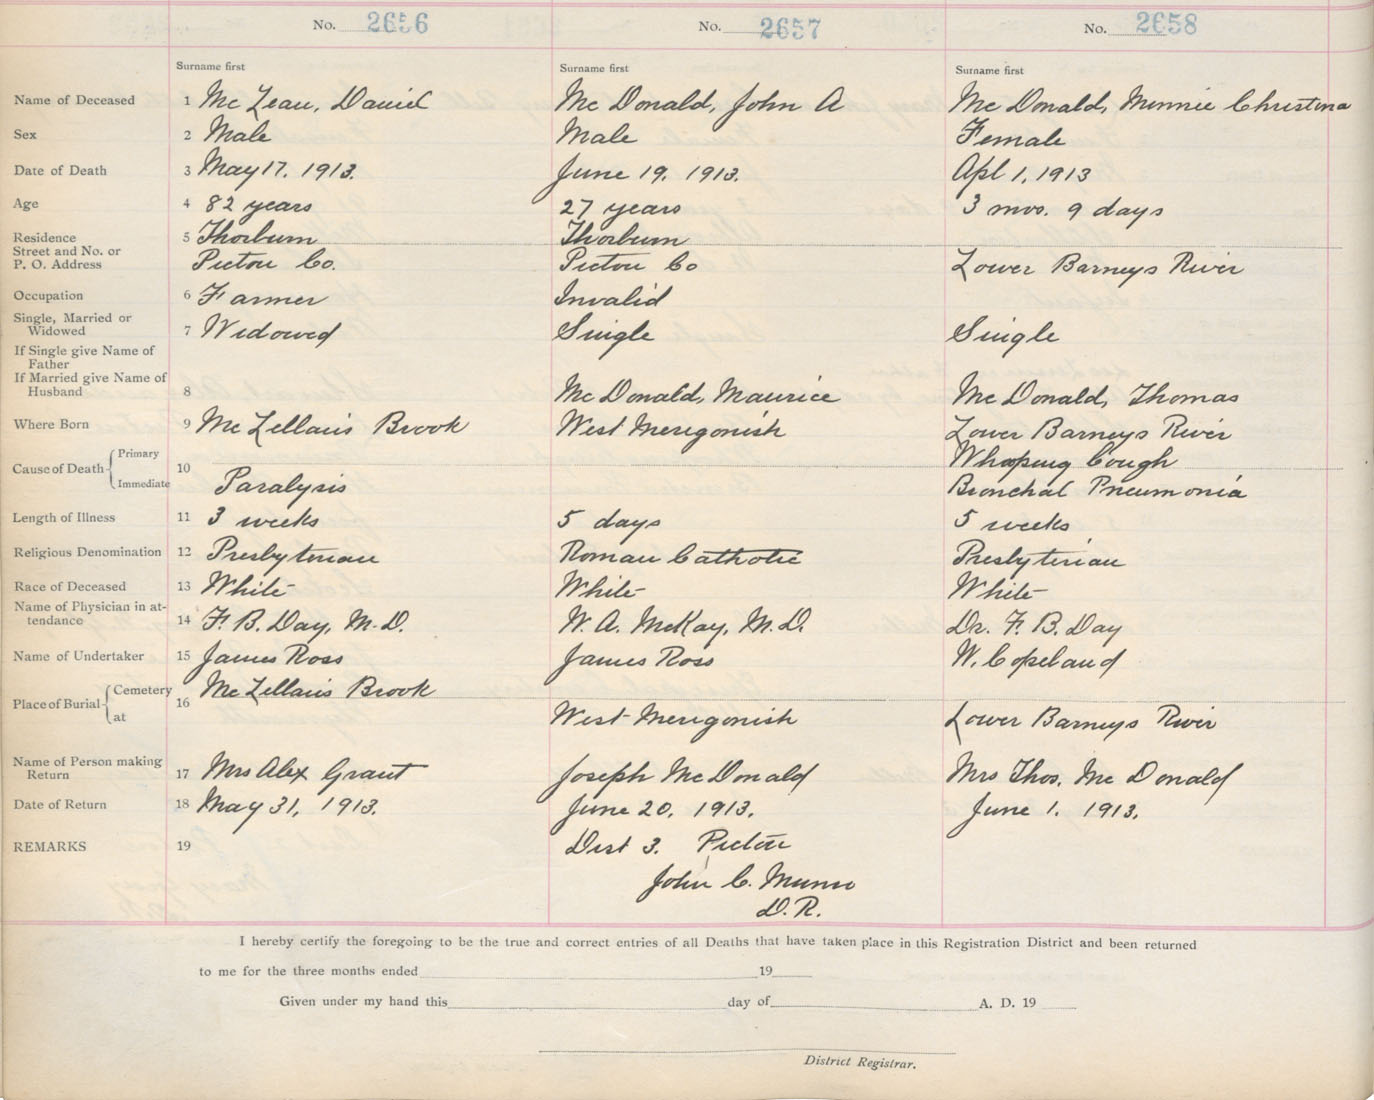 No. 2656 No. 2657 No. 2658
Surname first Surname first Surname first
Name of Deceased 1 Mc Lean, Daniel Mc Donald, John A Mc Donald, Minnie Christina
Sex 2 Male Male Female
Date of Death 3 May 17. 1913. June 19. 1913. Apl 1, 1913
Age 4 82 years 27 years 3 mos. 9 days
Residence 5 Thorburn Thorburn
Street and No. or
P. O. Address Pictou Co. Pictou Co Lower Barneys River
Occupation 6 Farmer Invalid
Single, Married or
Widowed 7 Widowed Single Single
If Single give Name of
Father
If Married give Name of
Husband 8 Mc Donald, Maurice Mc Donald, Thomas
Where Born 9 Mc Lellans Brook West Merigonish Lower Barneys River
Cause of Death Primary 10 Whoping Cough
Immediate Paralysis Bronchal Pneumonia
Length of Illness 11 3 weeks 5 days 5 weeks
Religious Denomination 12 Presbyterian Roman Catholic Presbyterian
Race of Deceased 13 White White White
Name of Physician in at-
tendance 14 F. B. Day, M.D. W. A. McKay, M.D. Dr. F. B. Day
Name of Undertaker 15 James Ross James Ross W. Copeland
Place of Burial Cemetery 16 Mc Lellans Brook
at West Merigonish Lower Barneys River
Name of Person making
Return 17 Mrs Alex Grant Joseph McDonald Mrs Thos. Mc Donald
Date of Return 18 May 31, 1913. June 20. 1913. June 1. 1913.
REMARKS 19 Dist 3. Pictou
John C. Munro
D.R.
I hereby certify the foregoing to be the true and correct entries of all Deaths that have taken place in this Registration District and been returned
to me for the three months ended 19
Given under my hand this day of A. D. 19
District Registrar.